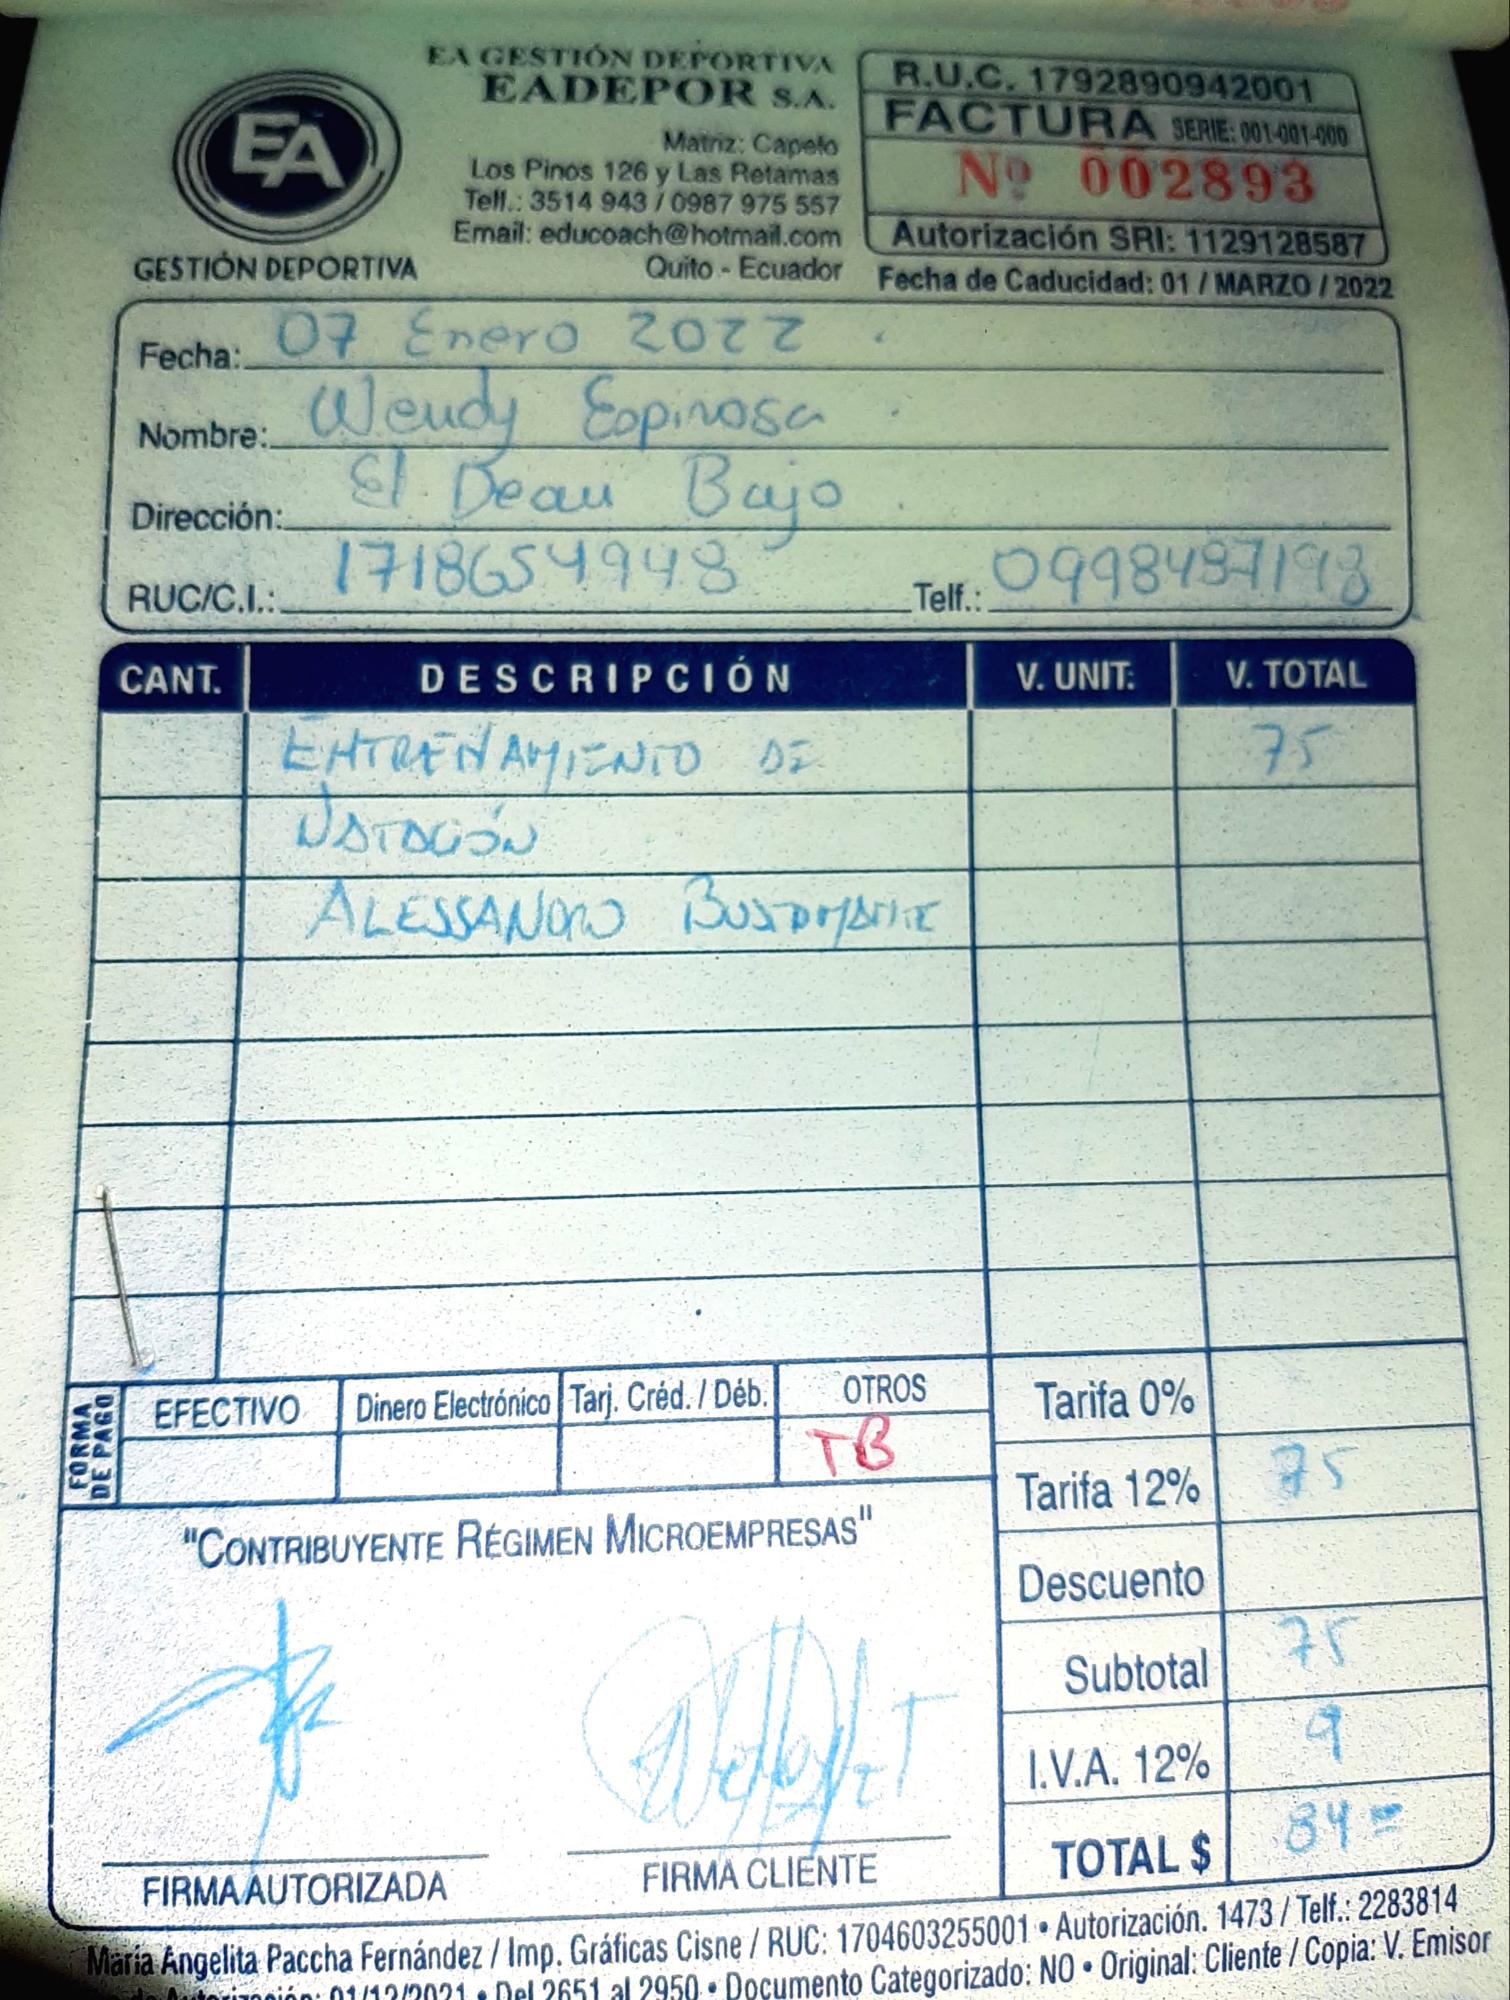 EA GESTIÓN DEPORTIVA
EADEPOR S.A.
EA
GESTIÓN DEPORTIVA
Matriz: Capelo
Los Pinos 126 y Las Retamas
Telf.: 3514 943 / 0987 975 557
Email: educoach@hotmail.com
Quito - Ecuador
R.U.C. 1792890942001
FACTURA SERIE: 001-001-000
Nº 002893
Autorización SRI: 1129128587
Fecha de Caducidad: 01 / MARZO / 2022
Fecha: 07 Enero 2022
Nombre: Wendy Espinosa
Dirección: El Dean Bajo
RUC/C.I.: 1718654948 Telf.:
CANT. DESCRIPCIÓN V. UNIT. V. TOTAL
ENTRENAMIENTO DE 75
NATACIÓN
ALESSANDRO BUSTAMANTE
FORMA DE PAGO
EFECTIVO Dinero Electrónico Tarj. Créd. / Déb. OTROS
TB
Tarifa 0%
Tarifa 12% 75
Descuento
Subtotal 75
I.V.A. 12% 9
TOTAL $ 84=
"CONTRIBUYENTE RÉGIMEN MICROEMPRESAS"
FIRMA AUTORIZADA FIRMA CLIENTE
María Angelita Paccha Fernández / Imp. Gráficas Cisne / RUC: 1704603255001 • Autorización. 1473 / Telf.: 2283814
Autorización: 01/12/2021 • Del 2651 al 2950 • Documento Categorizado: NO • Original: Cliente / Copia: V. Emisor